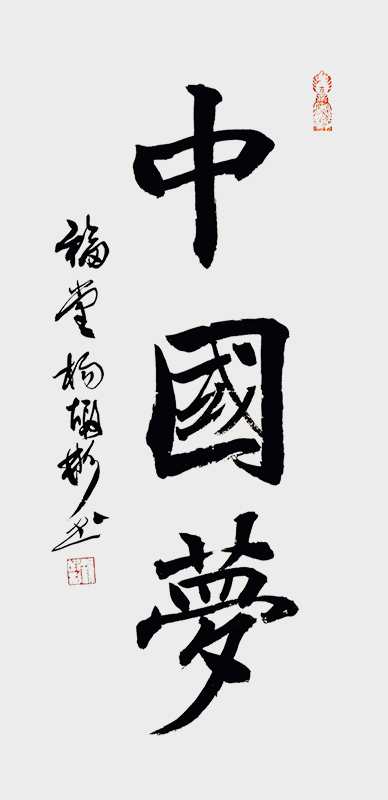 中國夢
福堂楊